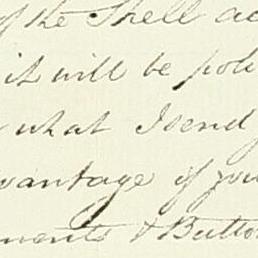 of the Shell ac
it will be poli
what I send
vantage if you
ments & Butto